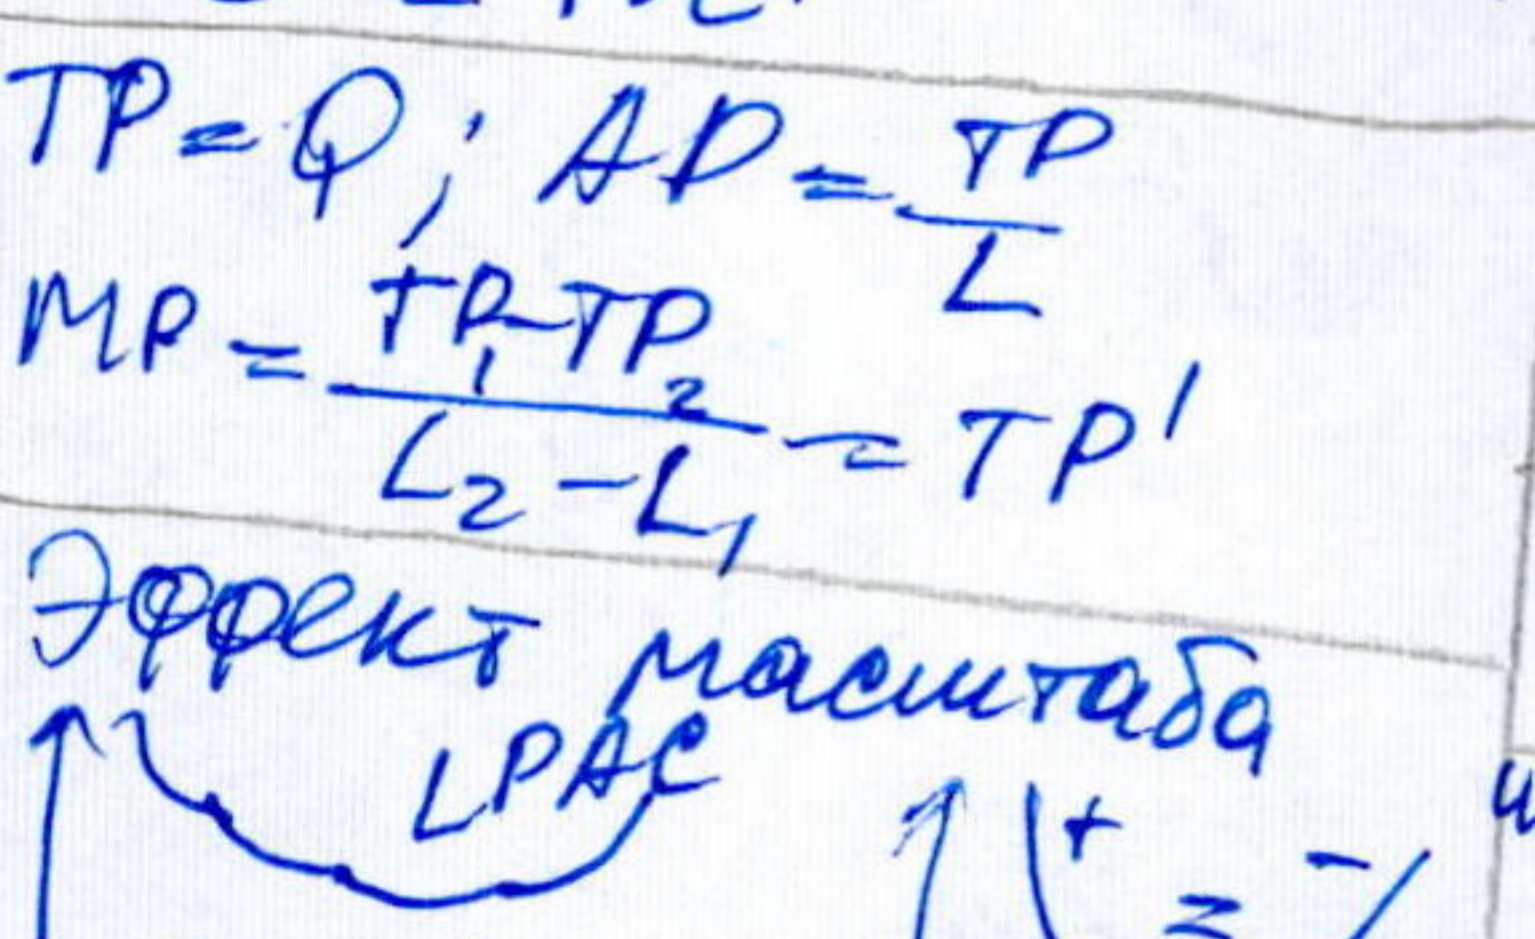 TP = Q; AP = TP/L
MP = (TP₁-TP₂)/(L₂-L₁) = TP'
Эффект масштаба
LPAC
+ = -